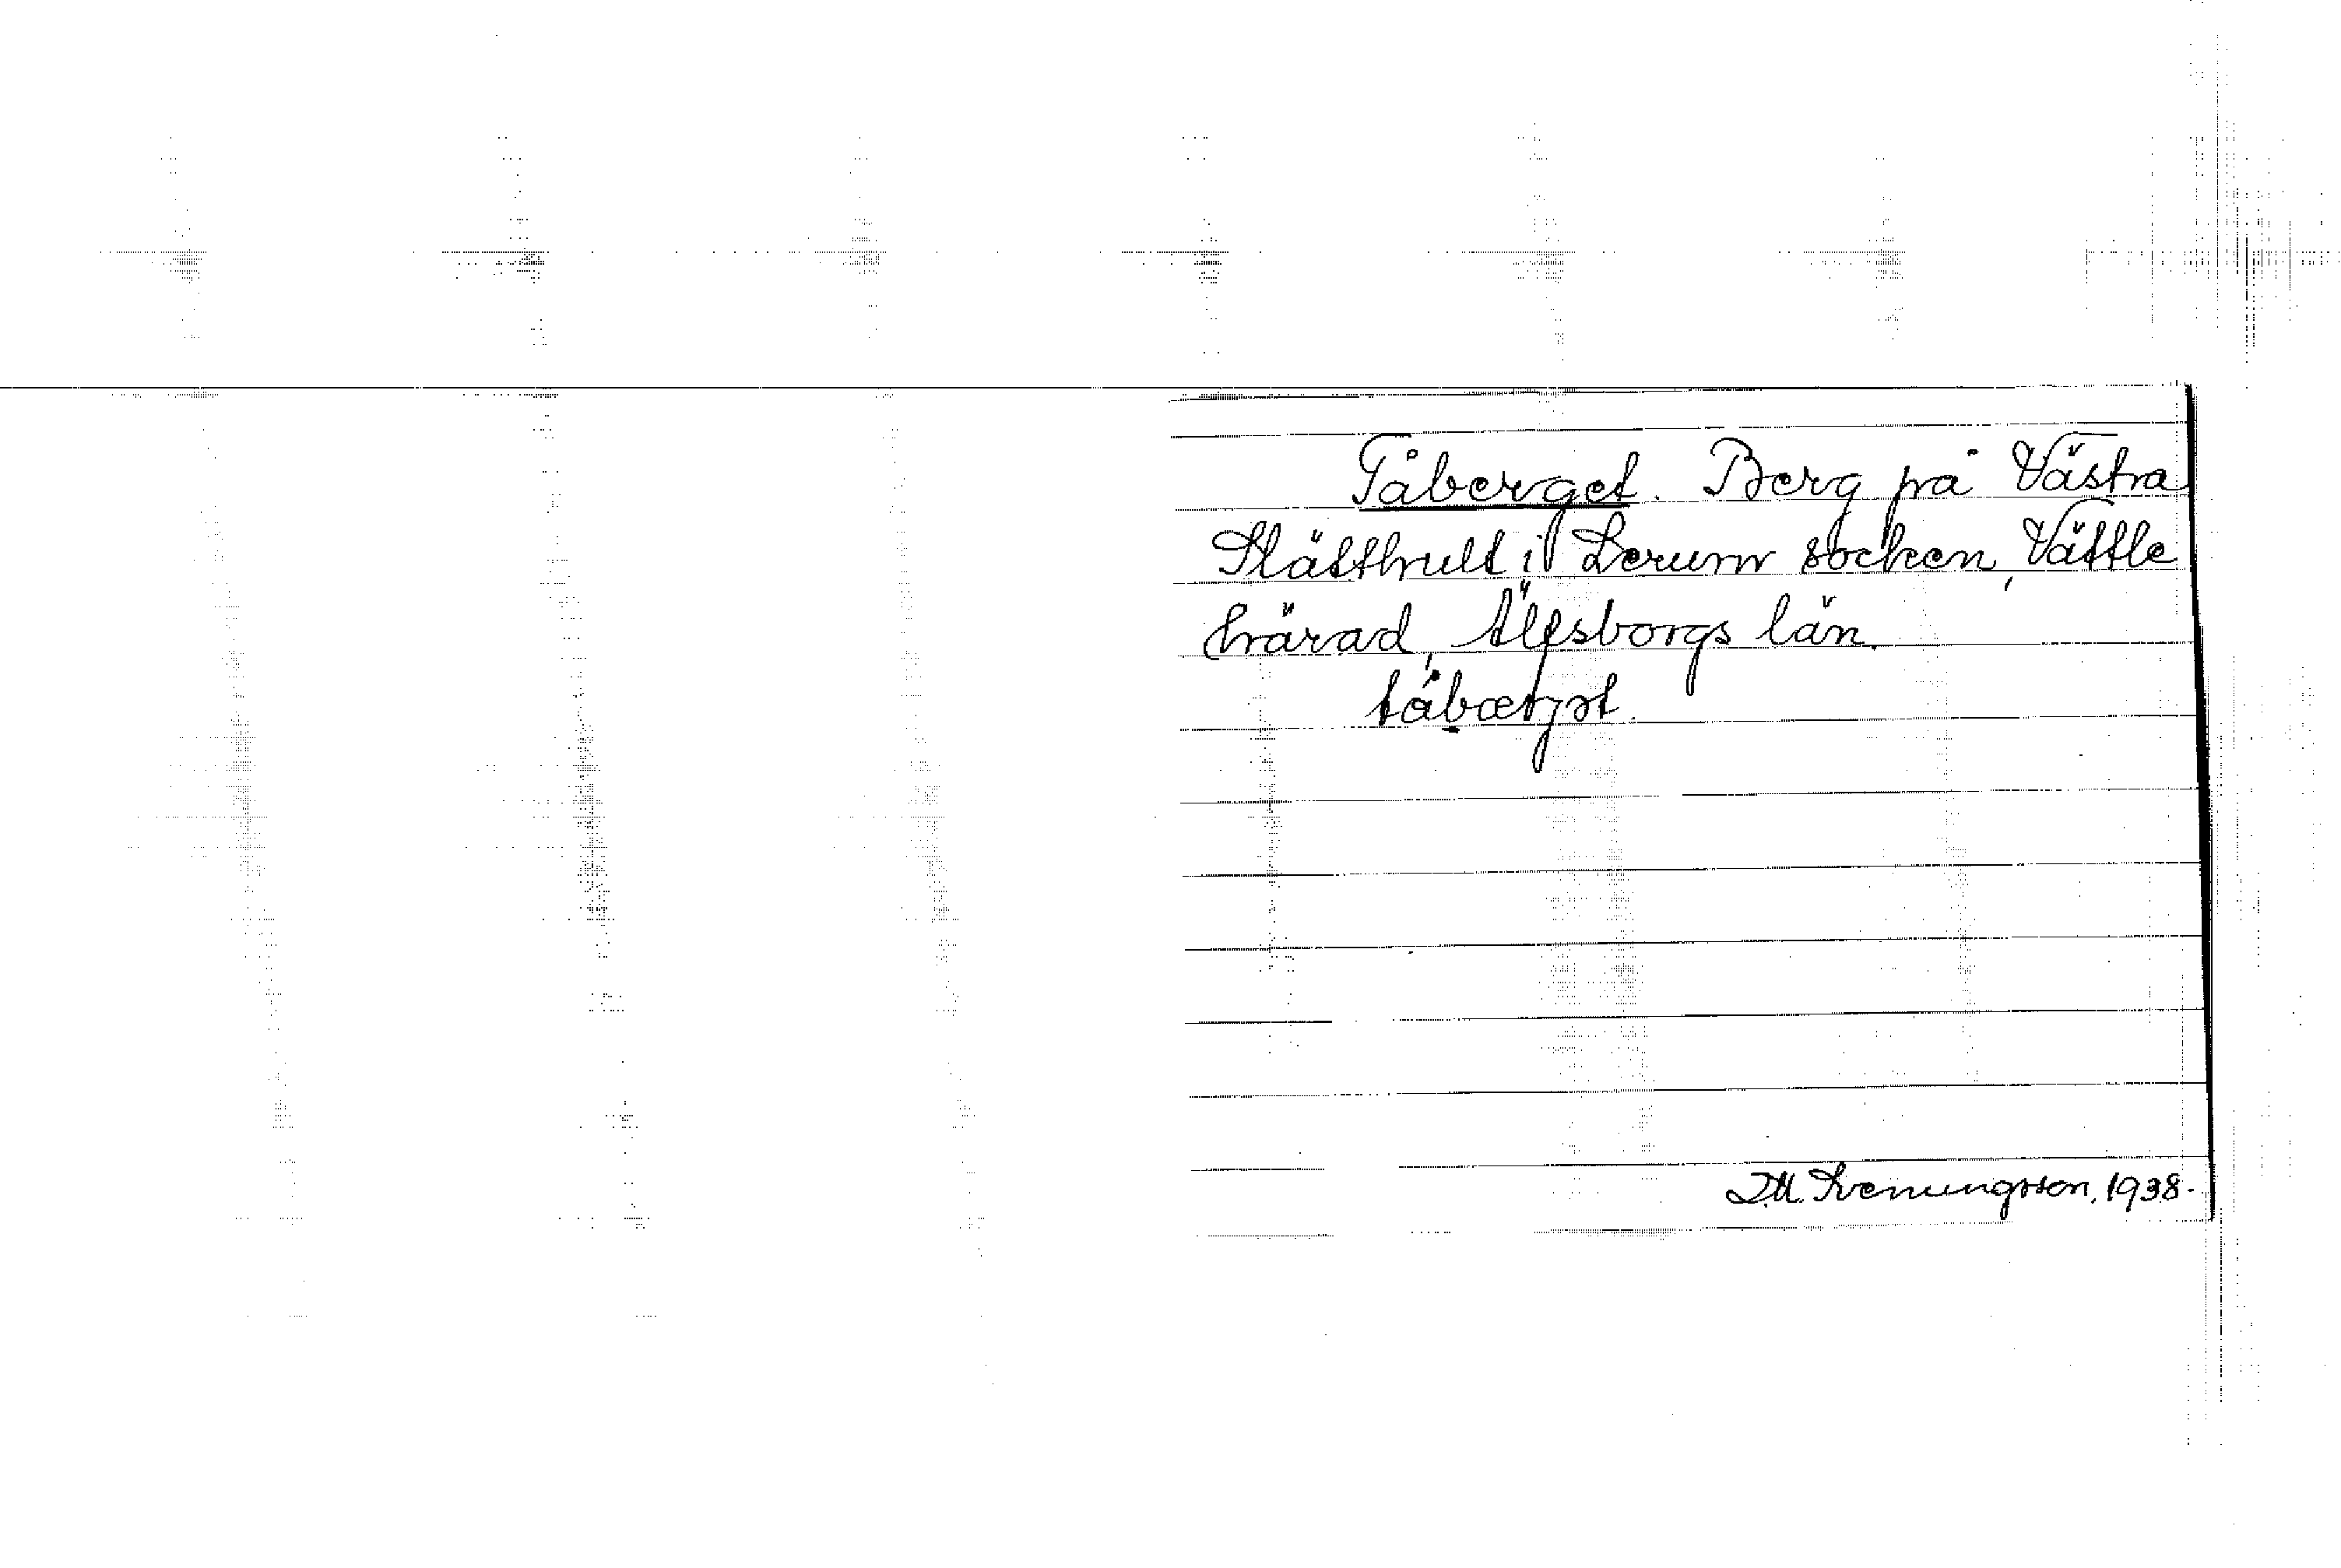 Tåberget. Berg på Västra
Slätthult i Lerum socken, Vättle
härad, Älfsborgs län.
D.M. Svenungsson, 1938.